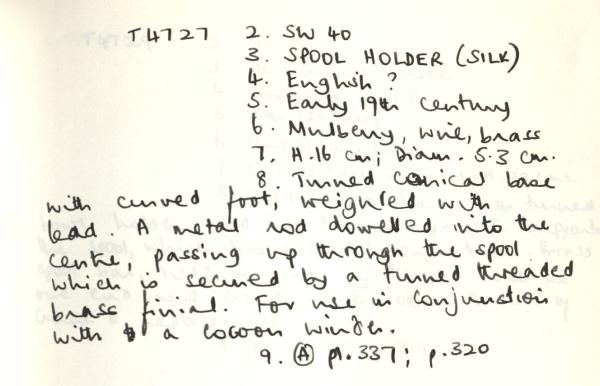 T4727 2. SW 40
3. SPOOL HOLDER (SILK)
4. English ?
5. Early 19th century
6. Mulberry, wire, brass
7. H. 16 cm; Diam. 5.3 cm.
8. Turned conical base
with curved foot, weighted with
lead. A metal rod dowelled into the
centre, passing up through the spool
which is secured by a turned threaded
brass finial. For use in conjunction
with a cocoon winder.
9. Ⓐ pl. 337; p. 320